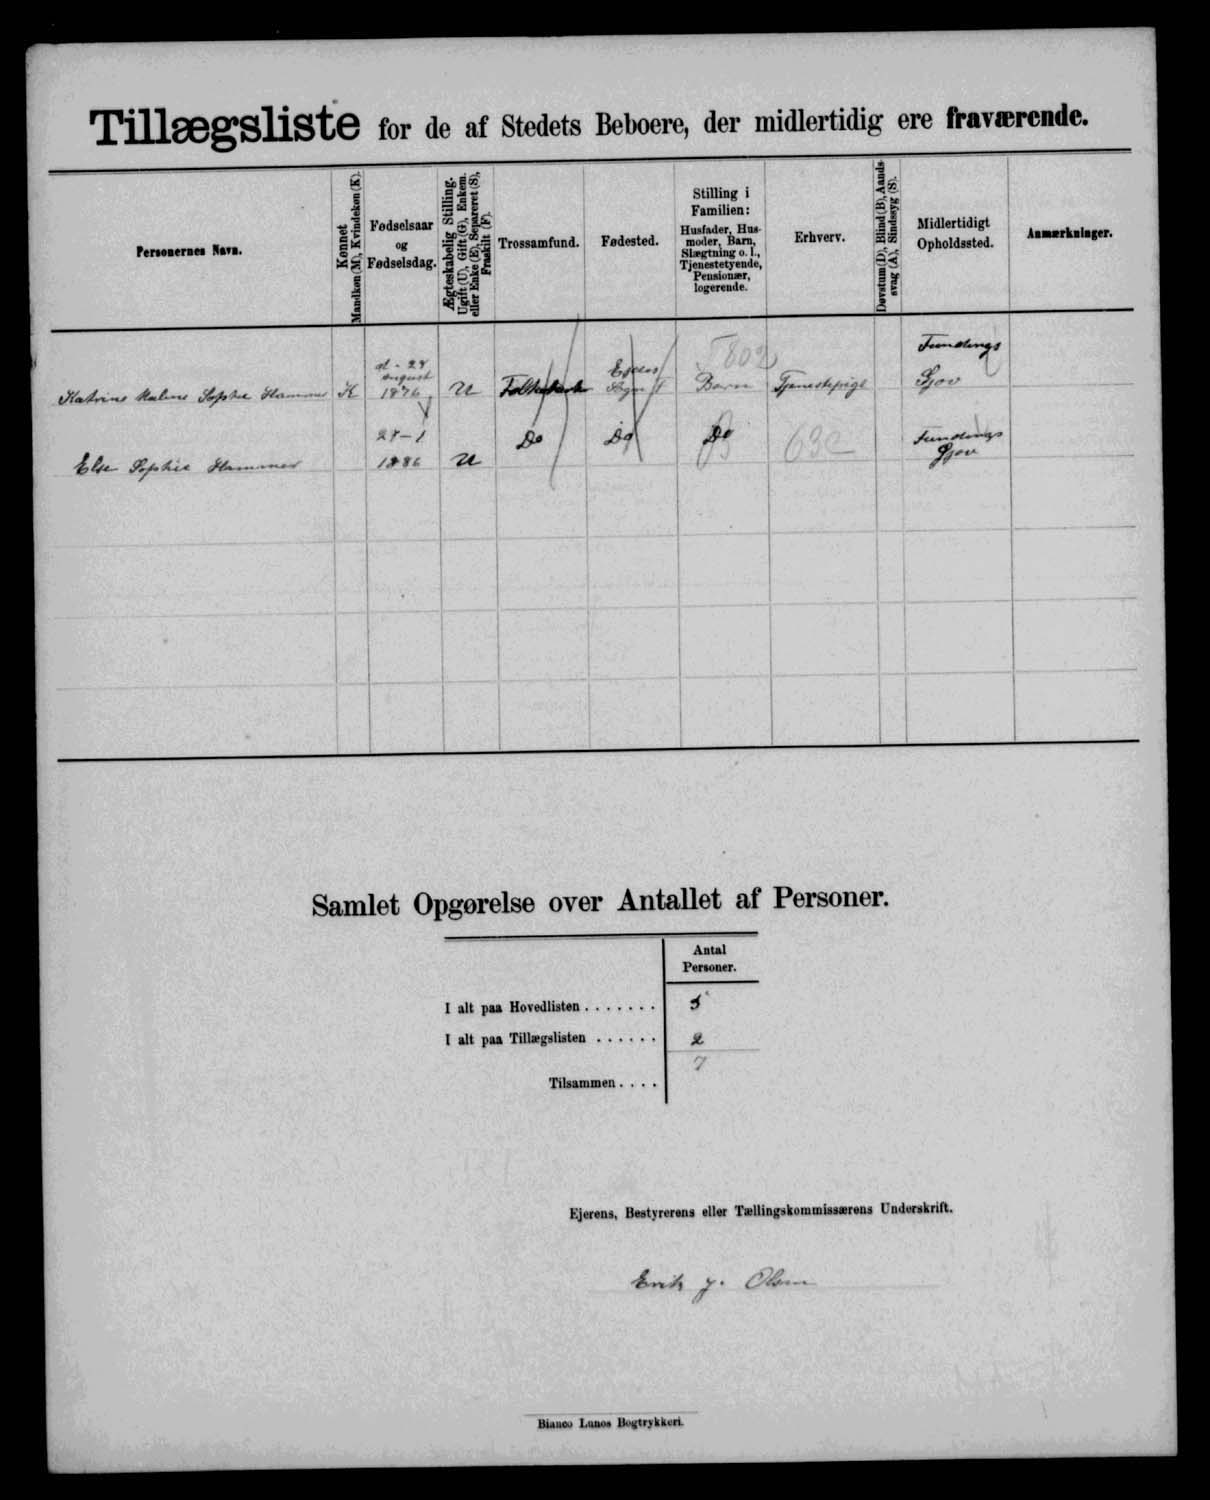 Tillægsliste for de af Stedets Beboere, der midlertidig ere fraværende.
Personernes Navn.
Kønnet
Mandkøn (M), Kvindekøn (K).
Fødselsaar
og
Fødselsdag.
Ægteskabelig Stilling.
Ugift (U), Gift (G), Enkem.
eller Enke (E), Separeret (S),
Fraskilt (F).
Trossamfund.
Fødested.
Stilling i
Familien:
Husfader, Hus-
moder, Barn,
Slægtning o. l.,
Tjenestetyende,
Pensionær,
logerende.
Erhverv.
Døvstum (D), Blind (B), Aands-
svag (A), Sindssyg (S).
Midlertidigt
Opholdssted.
Anmærkninger.
Katrine Sophie Hammer K d - 28 August 1876 U Ejdes Sogn Barn Tjenestepige Fundings Gjov
Else Sophie Hammer 28-1 1886 U Do Do Do Fundings Gjov
Samlet Opgørelse over Antallet af Personer.
Antal
Personer.
I alt paa Hovedlisten . . . . . . . 5
I alt paa Tillægslisten . . . . . . 2
7
Tilsammen . . . .
Ejerens, Bestyrerens eller Tællingskommissærens Underskrift.
Erik J. Olsen
Bianco Lunos Bogtrykkeri.